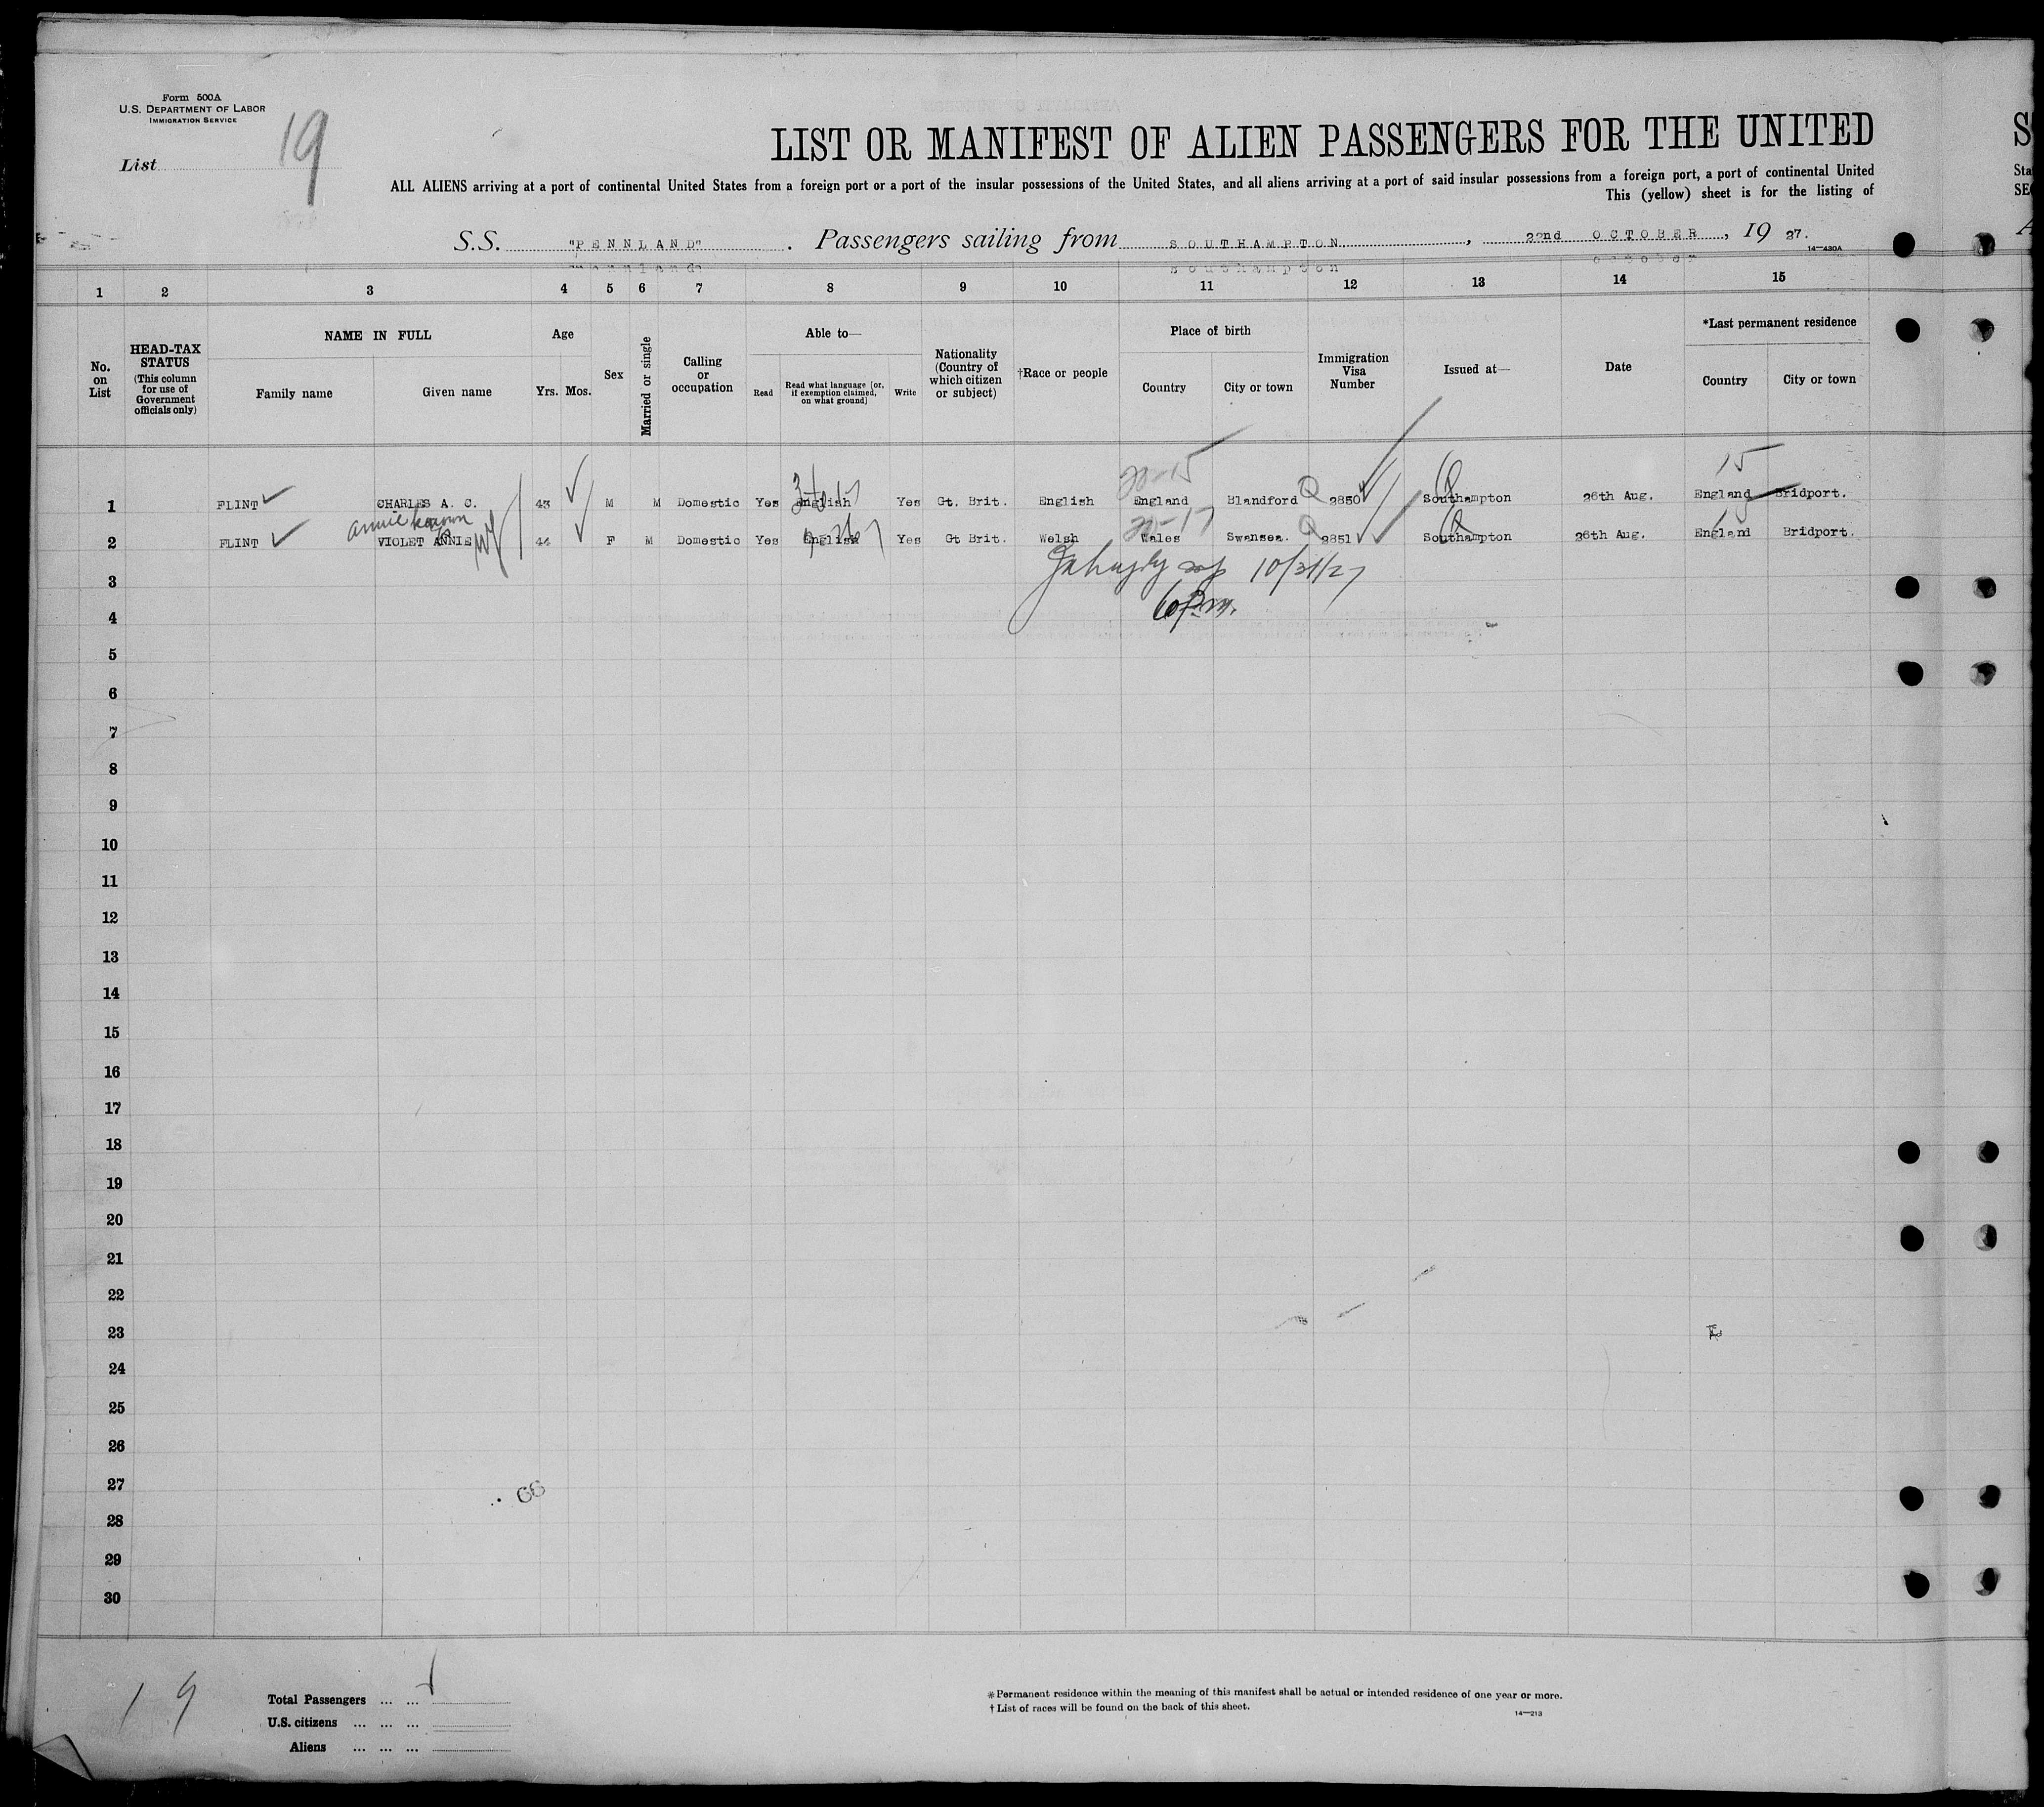 Form 500A
U.S. DEPARTMENT OF LABOR
IMMIGRATION SERVICE
List 19
LIST OR MANIFEST OF ALIEN PASSENGERS FOR THE UNITED
ALL ALIENS arriving at a port of continental United States from a foreign port or a port of the insular possessions of the United States, and all aliens arriving at a port of said insular possessions from a foreign port, a port of continental United
This (yellow) sheet is for the listing of
S.S. "PENNLAND". Passengers sailing from SOUTHAMPTON, 22nd OCTOBER, 19 27.
14—430A
1 2 3 4 5 6 7 8 9 10 11 12 13 14 15
No. on List
HEAD-TAX STATUS (This column for use of Government officials only)
NAME IN FULL
Family name Given name
Age
Yrs. Mos.
Sex
Married or single
Calling or occupation
Able to—
Read Read what language [or, if exemption claimed, on what ground] Write
Nationality (Country of which citizen or subject)
†Race or people
Place of birth
Country City or town
Immigration Visa Number
Issued at—
Date
*Last permanent residence
Country City or town
20-15 15
1 FLINT CHARLES A. C. 43 M M Domestic Yes English Yes Gt. Brit. English England Blandford Q 2850 Southampton 26th Aug. England Bridport.
annie 20-17
2 FLINT VIOLET ANNIE 44 F M Domestic Yes English Yes Gt Brit. Welsh Wales Swansea. Q 2851 Southampton 26th Aug. England Bridport.
3 10/31/27
4 6 P.m.
5
6
7
8
9
10
11
12
13
14
15
16
17
18
19
20
21
22
23
24
25
26
27
28
29
30
66
19
Total Passengers ... ...
U.S. citizens ... ... ...
Aliens ... ... ...
*Permanent residence within the meaning of this manifest shall be actual or intended residence of one year or more.
†List of races will be found on the back of this sheet.
14—213